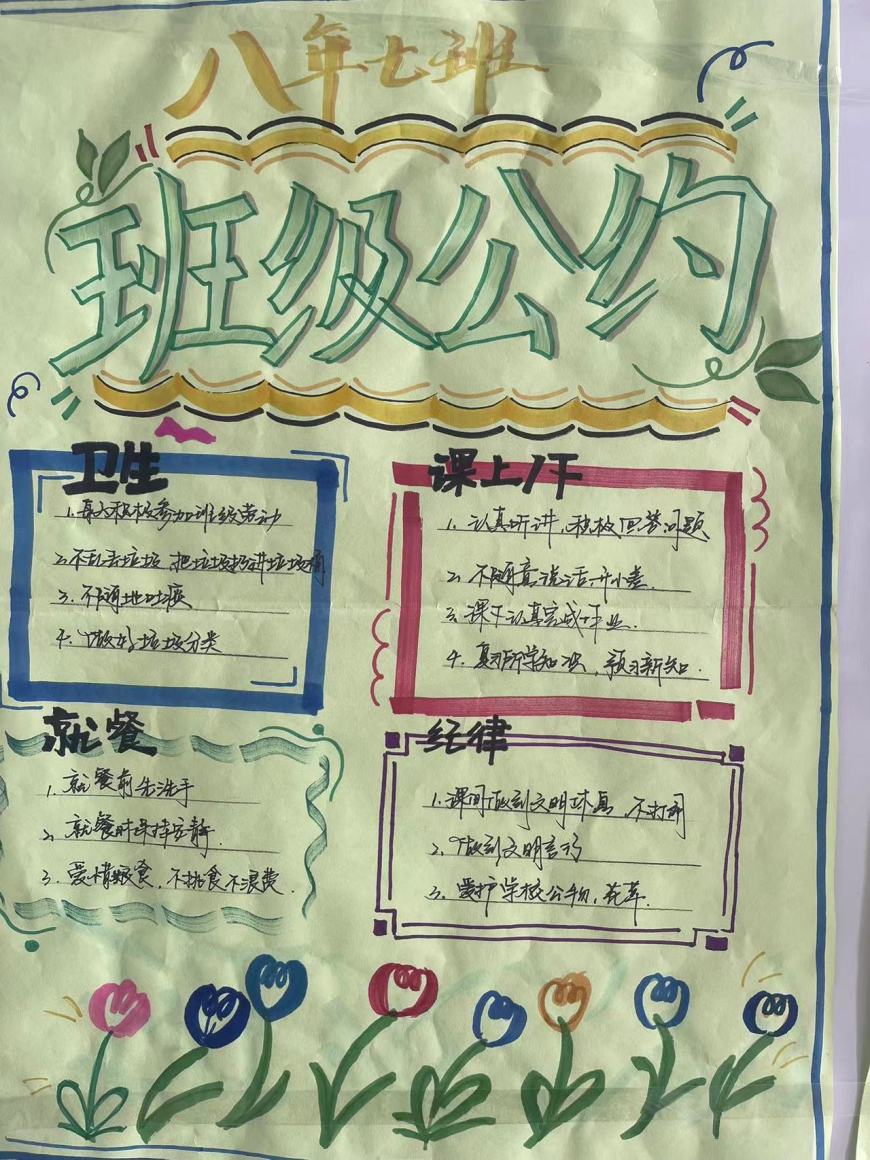 八年七班
班级公约
卫生
1.每人积极参加班级劳动
2.不乱丢垃圾,把垃圾扔进垃圾桶
3.不随地吐痰
4.做好垃圾分类
课上/下
1.认真听讲,积极回答问题
2.不随意说话,开小差.
3.课下认真完成作业.
4.复习所学知识,预习新知.
就餐
1.就餐前先洗手
2.就餐时保持安静.
3.爱惜粮食,不挑食不浪费.
纪律
1.课间做到文明休息,不打闹
2.做到文明言行
3.爱护学校公物,花草.